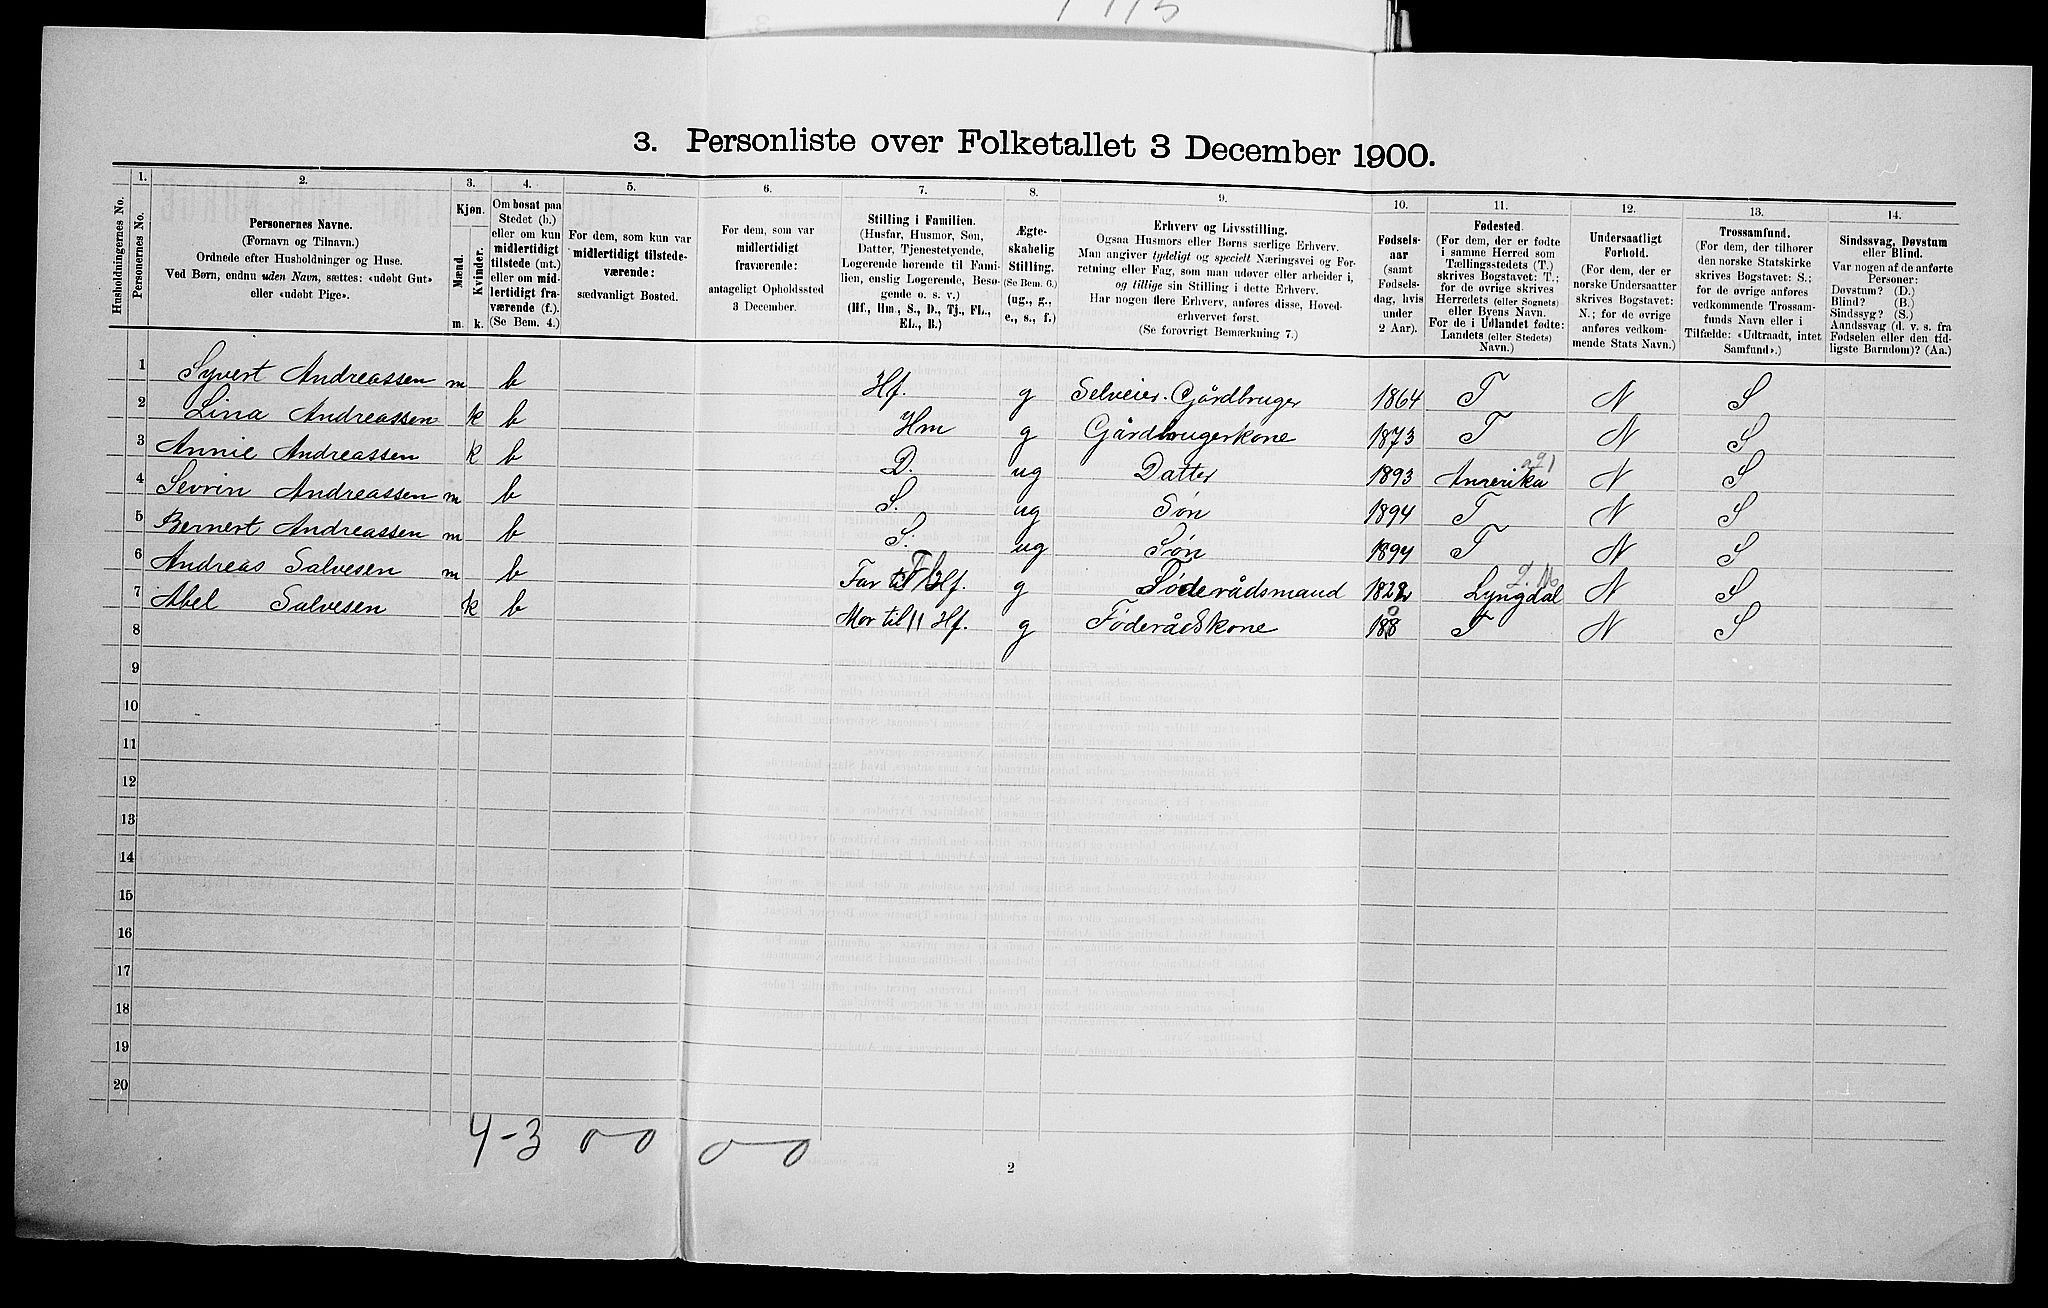 3. Personliste over Folketallet 3 December 1900.
Husholdningernes No.
1. Personernes No.
2. Personernes Navne.
(Fornavn og Tilnavn.)
Ordnede efter Husholdninger og Huse.
Ved Børn, endnu uden Navn, sættes: «udøbt Gut»
eller «udøbt Pige».
3. Kjøn.
Mænd. m.
Kvinder. k.
4. Om bosat paa
Stedet (b.)
eller om kun
midlertidigt
tilstede (mt.)
eller om mid-
lertidigt fra-
værende (f.).
(Se Bem. 4.)
5. For dem, som kun var
midlertidigt tilstede-
værende:
sædvanligt Bosted.
6. For dem, som var
midlertidigt
fraværende:
antageligt Opholdssted
3 December.
7. Stilling i Familien.
(Husfar, Husmor, Søn,
Datter, Tjenestetyende,
Logerende hørende til Fami-
lien, enslig Logerende, Besø-
gende o. s. v.)
(Hf., Hm., S., D., Tj., FL.,
EL., B.)
8. Ægte-
skabelig
Stilling.
(Se Bem. 6.)
(ug., g.,
e., s., f.)
9. Erhverv og Livsstilling.
Ogsaa Husmors eller Børns særlige Erhverv.
Man angiver tydeligt og specielt Næringsvei og For-
retning eller Fag, som man udøver eller arbeider i,
og tillige sin Stilling i dette Erhverv.
Har nogen flere Erhverv, anføres disse, Hoved-
erhvervet først.
(Se forøvrigt Bemærkning 7.)
10. Fødsels-
aar
(samt
Fødsels-
dag, hvis
under
2 Aar).
11. Fødested.
(For dem, der er fødte
i samme Herred som
Tællingsstedets (T.)
skrives Bogstavet: T.;
for de øvrige skrives
Herredets (eller Sognets)
eller Byens Navn.
For de i Udlandet fødte:
Landets (eller Stedets)
Navn.)
12. Undersaatligt
Forhold.
(For dem, der er
norske Undersaatter
skrives Bogstavet:
N.; for de øvrige
anføres vedkom-
mende Stats Navn.)
13. Trossamfund.
(For dem, der tilhører
den norske Statskirke
skrives Bogstavet: S.;
for de øvrige anføres
vedkommende Trossam-
funds Navn eller i
Tilfælde: «Udtraadt, intet
Samfund».)
14. Sindssvag, Døvstum
eller Blind.
Var nogen af de anførte
Personer:
Døvstum? (D.)
Blind? (B.)
Sindssyg? (S.)
Aandssvag (d. v. s. fra
Fødselen eller den tid-
ligste Barndom)? (Aa.)
1 Syvert Andreassen m b Hf. g Selveier. Gårdbruger 1864 T N S
2 Lina Andreassen k b Hm g Gårdbrugerkone 1873 T N S
3 Annie Andreassen k b D. ug Datter 1893 Amerika N S
4 Sevrin Andreassen m b S. ug Søn 1894 T N S
5 Bernert Andreassen m b S. ug Søn 1897 T N S
6 Andreas Salvesen m b Far til Hf. g Føderådsmand Lyngdal N S
7 Abel Salvesen k b Mor til Hf. g Føderådskone T N S
8
9
10
11
12
13
14
15
16
17
18
19
20
4-3 0 0 0 0
2